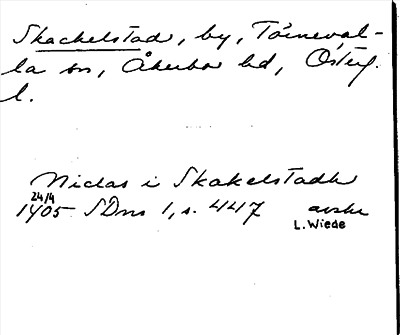 Skackelstad, by, Törneval-
la sn, Åkerbo hd, Österg.
l.
Niclas i Skakelstadh
24/4
1405 SDns 1, s. 447 avskr
L. Wiede